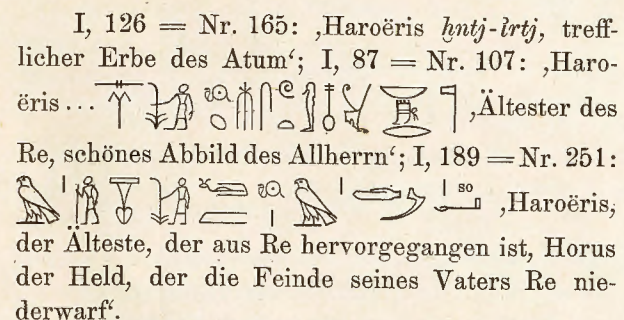 I, 126 = Nr. 165: ‚Haroëris ḫntj-ỉrtj, treff-
licher Erbe des Atum‘; I, 87 = Nr. 107: ‚Haro-
ëris ... ‚Ältester des
Re, schönes Abbild des Allherrn‘; I, 189 = Nr. 251:
so ‚Haroëris,
der Älteste, der aus Re hervorgegangen ist, Horus
der Held, der die Feinde seines Vaters Re nie-
derwarf‘.